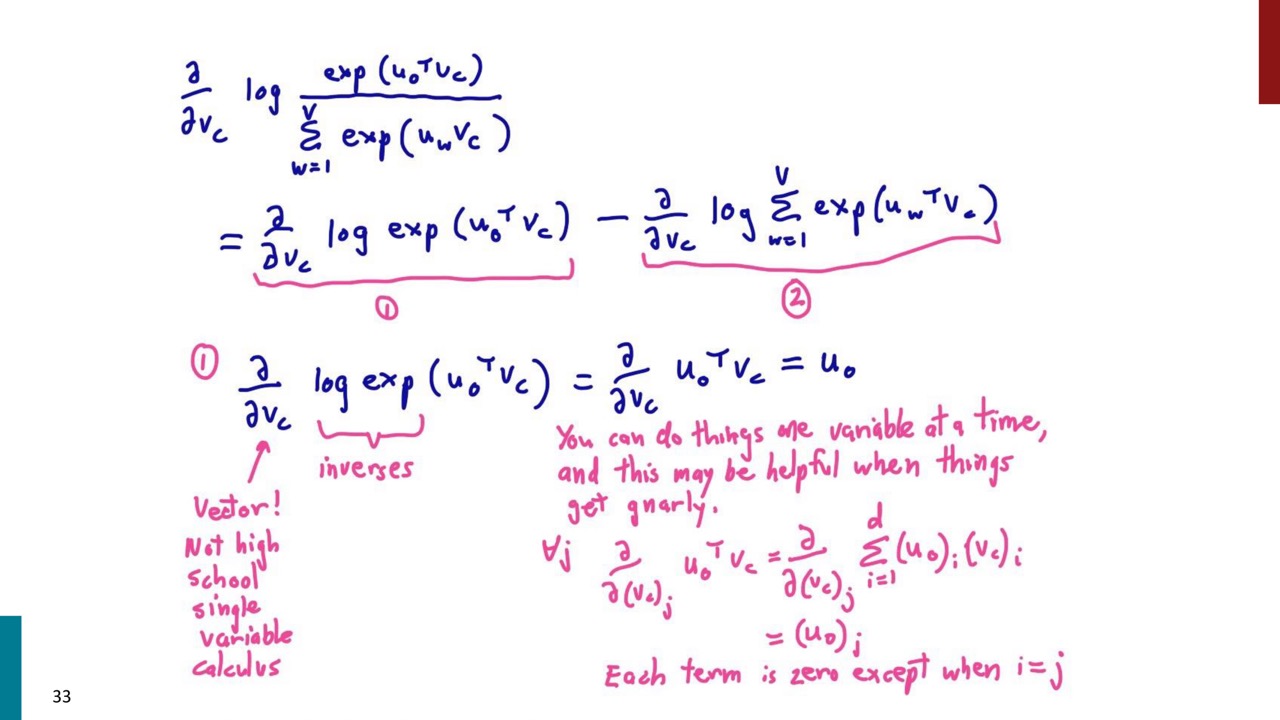 ∂/∂v_c log exp(u_o^T v_c) / Σ_{w=1}^{V} exp(u_w v_c)
= ∂/∂v_c log exp(u_o^T v_c) − ∂/∂v_c log Σ_{w=1}^{V} exp(u_w^T v_c)
① ②
① ∂/∂v_c log exp(u_o^T v_c) = ∂/∂v_c u_o^T v_c = u_o
inverses
Vector!
Not high
school
single
variable
calculus
You can do things one variable at a time,
and this may be helpful when things
get gnarly.
∀j ∂/∂(v_c)_j u_o^T v_c = ∂/∂(v_c)_j Σ_{i=1}^{d} (u_o)_i (v_c)_i
= (u_o)_j
Each term is zero except when i=j
33